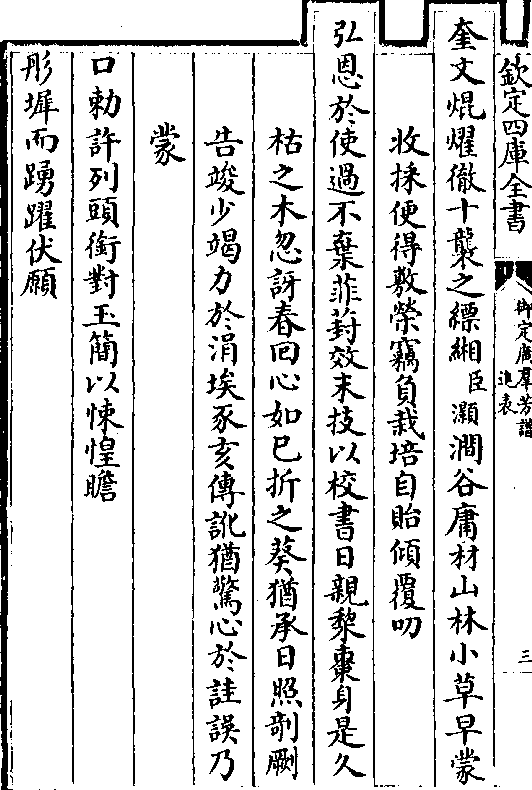 欽定四庫全書
御定廣羣芳譜
進表
三
奎文焜燿徹十襲之縹緗臣灝澗谷庸材山林小草早蒙
收採便得敷榮竊負栽培自貽傾覆叨
弘恩於使過不棄菲葑效末技以校書日親藜棗身是久
枯之木忽訝春回心如已折之葵猶承日照剞劂
告竣少竭力於涓埃豕亥傳訛猶驚心於詿誤乃
蒙
口勅許列頭銜對玉簡以悚惶瞻
彤墀而踴躍伏願